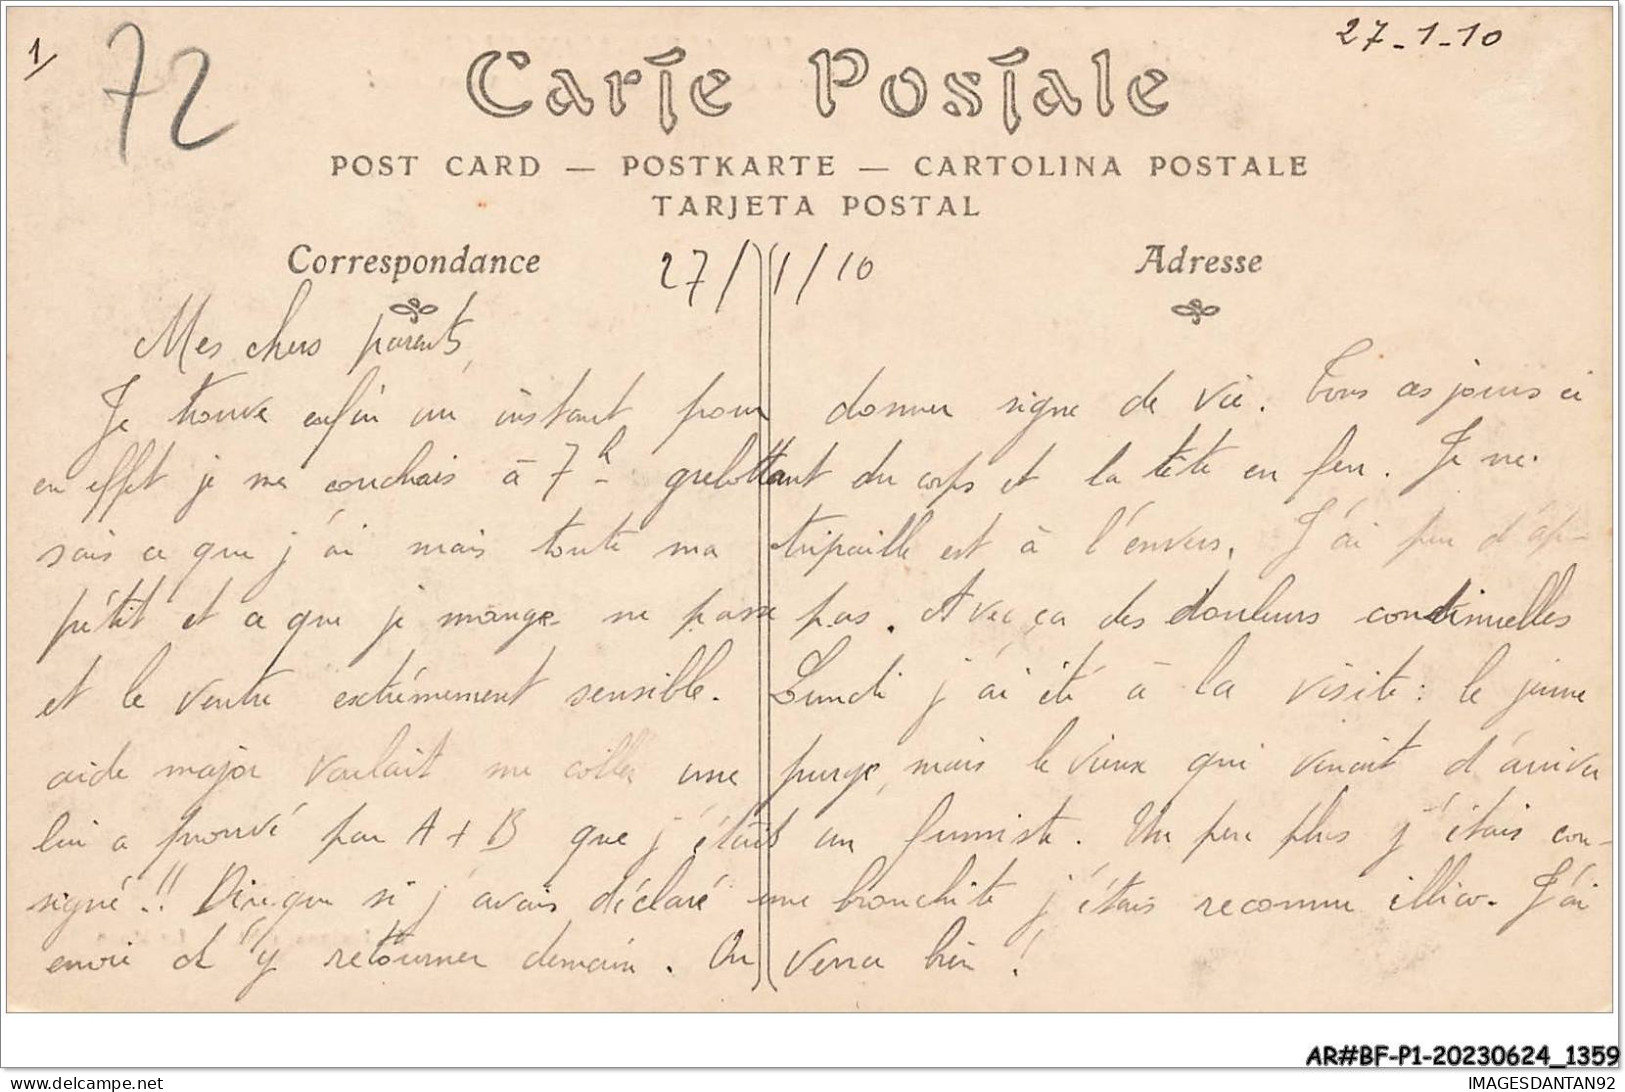 1/
72
27-1-10
Carte Postale
POST CARD — POSTKARTE — CARTOLINA POSTALE
TARJETA POSTAL
Correspondance
27/1/10
Adresse
Mes chers parents,
Je trouve enfin un instant pour donner signe de vie. Tous ces jours ci
en effet je me couchais à 7h grelottant du corps et la tête en feu. Je ne
sais ce que j'ai mais toute ma tripaille est à l'envers. J'ai peu d'ap-
pétit et ce que je mange ne passe pas. Avec ça des douleurs continuelles
et le ventre extrémement sensible. Lundi j'ai été à la visite: le jeune
aide major voulait me coller une purge, mais le vieux qui venait d'arriver
lui a prouvé par A + B que j'étais un fumiste. Un peu plus j'étais con-
signé!! Dire que si j'avais déclaré une bronchite j'étais reconnu illico. J'ai
envie d'y retourner demain. On verra bien!
AR#BF-P1-20230624_1359
https://www.delcampe.net/fr/collections/store/IMAGESDANTAN92
IMAGESDANTAN92